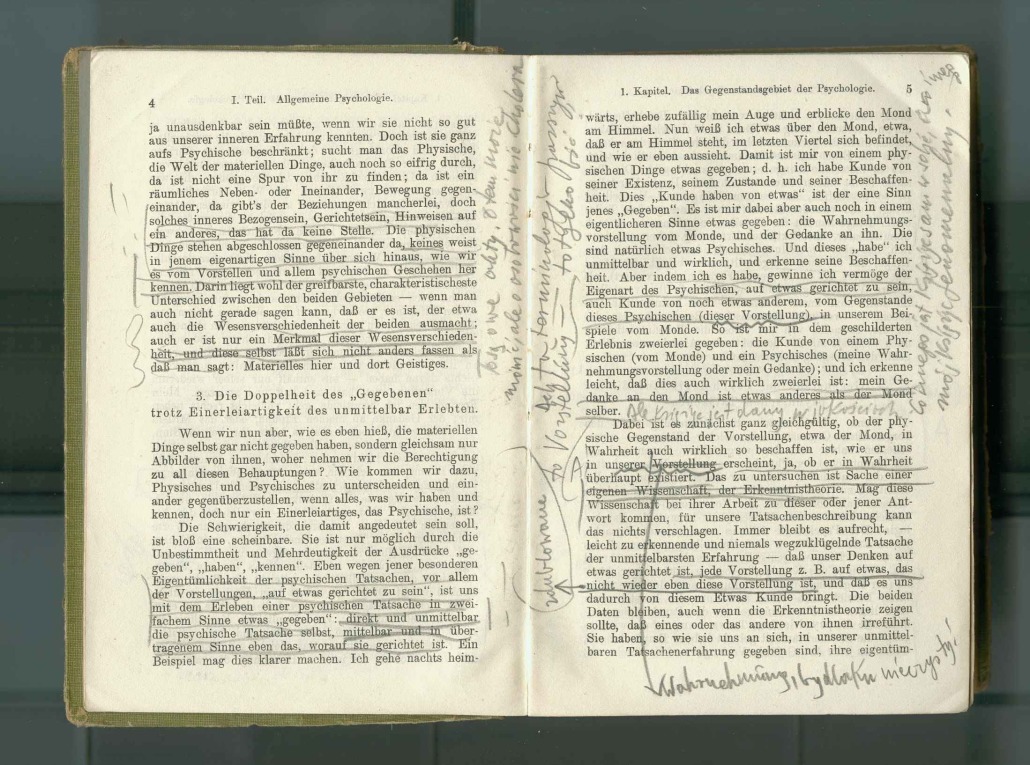 4
I. Teil. Allgemeine Psychologie.
ja unausdenkbar sein müßte, wenn wir sie nicht so gut
aus unserer inneren Erfahrung kennten. Doch ist sie ganz
aufs Psychische beschränkt; sucht man das Physische,
die Welt der materiellen Dinge, auch noch so eifrig durch,
da ist nicht eine Spur von ihr zu finden; da ist ein
räumliches Neben- oder Ineinander, Bewegung gegen-
einander, da gibt's der Beziehungen mancherlei, doch
solches inneres Bezogensein, Gerichtetsein, Hinweisen auf
ein anderes, das hat da keine Stelle. Die physischen
Dinge stehen abgeschlossen gegeneinander da, keines weist
in jenem eigenartigen Sinne über sich hinaus, wie wir
es vom Vorstellen und allem psychischen Geschehen her
kennen. Darin liegt wohl der greifbarste, charakteristischeste
Unterschied zwischen den beiden Gebieten — wenn man
auch nicht gerade sagen kann, daß er es ist, der etwa
auch die Wesensverschiedenheit der beiden ausmacht;
auch er ist nur ein Merkmal dieser Wesensverschieden-
heit, und diese selbst läßt sich nicht anders fassen als
daß man sagt: Materielles hier und dort Geistiges.
3. Die Doppelheit des „Gegebenen“
trotz Einerleiartigkeit des unmittelbar Erlebten.
Wenn wir nun aber, wie es eben hieß, die materiellen
Dinge selbst gar nicht gegeben haben, sondern gleichsam nur
Abbilder von ihnen, woher nehmen wir die Berechtigung
zu all diesen Behauptungen? Wie kommen wir dazu,
Physisches und Psychisches zu unterscheiden und ein-
ander gegenüberzustellen, wenn alles, was wir haben und
kennen, doch nur ein Einerleiartiges, das Psychische, ist?
Die Schwierigkeit, die damit angedeutet sein soll,
ist bloß eine scheinbare. Sie ist nur möglich durch die
Unbestimmtheit und Mehrdeutigkeit der Ausdrücke „ge-
geben“, „haben“, „kennen“. Eben wegen jener besonderen
Eigentümlichkeit der psychischen Tatsachen, vor allem
der Vorstellungen, „auf etwas gerichtet zu sein“, ist uns
mit dem Erleben einer psychischen Tatsache in zwei-
fachem Sinne etwas „gegeben“: direkt und unmittelbar
die psychische Tatsache selbst, mittelbar und in über-
tragenem Sinne eben das, worauf sie gerichtet ist. Ein
Beispiel mag dies klarer machen. Ich gehe nachts heim-
1. Kapitel. Das Gegenstandsgebiet der Psychologie.
5
wärts, erhebe zufällig mein Auge und erblicke den Mond
am Himmel. Nun weiß ich etwas über den Mond, etwa,
daß er am Himmel steht, im letzten Viertel sich befindet,
und wie er eben aussieht. Damit ist mir von einem phy-
sischen Dinge etwas gegeben; d. h. ich habe Kunde von
seiner Existenz, seinem Zustande und seiner Beschaffen-
heit. Dies „Kunde haben von etwas“ ist der eine Sinn
jenes „Gegeben“. Es ist mir dabei aber auch noch in einem
eigentlicheren Sinne etwas gegeben: die Wahrnehmungs-
vorstellung vom Monde, und der Gedanke an ihn. Die
sind natürlich etwas Psychisches. Und dieses „habe“ ich
unmittelbar und wirklich, und erkenne seine Beschaffen-
heit. Aber indem ich es habe, gewinne ich vermöge der
Eigenart des Psychischen, auf etwas gerichtet zu sein,
auch Kunde von noch etwas anderem, vom Gegenstande
dieses Psychischen (dieser Vorstellung), in unserem Bei-
spiele vom Monde. So ist mir in dem geschilderten
Erlebnis zweierlei gegeben: die Kunde von einem Phy-
sischen (vom Monde) und ein Psychisches (meine Wahr-
nehmungsvorstellung oder mein Gedanke); und ich erkenne
leicht, daß dies auch wirklich zweierlei ist: mein Ge-
danke an den Mond ist etwas anderes als der Mond
selber. Ale księżyc jest dany w jakościach
Dabei ist es zunächst ganz gleichgültig, ob der phy-
sische Gegenstand der Vorstellung, etwa der Mond, in
Wahrheit auch wirklich so beschaffen ist, wie er uns
in unserer Vorstellung erscheint, ja, ob er in Wahrheit
überhaupt existiert. Das zu untersuchen ist Sache einer
eigenen Wissenschaft, der Erkenntnistheorie. Mag diese
Wissenschaft bei ihrer Arbeit zu dieser oder jener Ant-
wort kommen, für unsere Tatsachenbeschreibung kann
das nichts verschlagen. Immer bleibt es aufrecht, —
leicht zu erkennende und niemals wegzuklügelnde Tatsache
der unmittelbarsten Erfahrung — daß unser Denken auf
etwas gerichtet ist, jede Vorstellung z. B. auf etwas, das
nicht wieder eben diese Vorstellung ist, und daß es uns
dadurch von diesem Etwas Kunde bringt. Die beiden
Daten bleiben, auch wenn die Erkenntnistheorie zeigen
sollte, daß eines oder das andere von ihnen irreführt.
Sie haben, so wie sie uns an sich, in unserer unmittel-
baren Tatsachenerfahrung gegeben sind, ihre eigentüm-
Wahrnehmung, bydlaku nieczysty!
to Vorstellung =